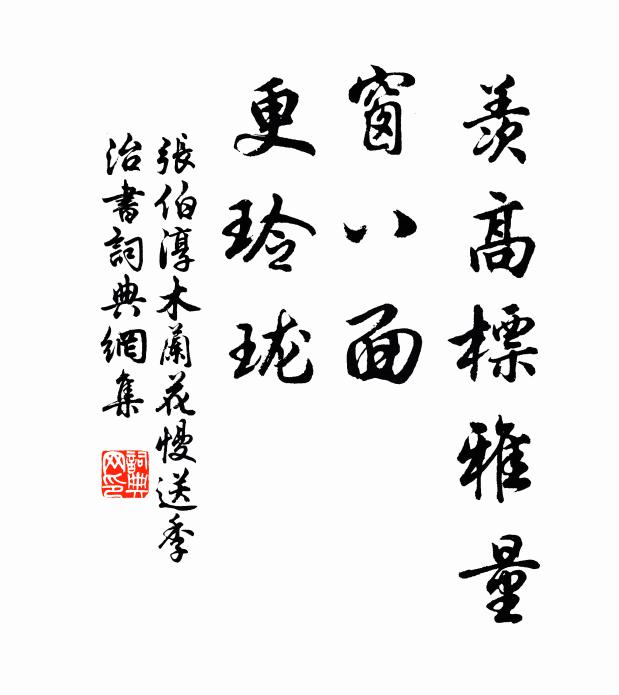 羨高標雅量
窗八面
更玲珑
張伯淳木蘭花慢送季
治書詞典網集
詞典网印